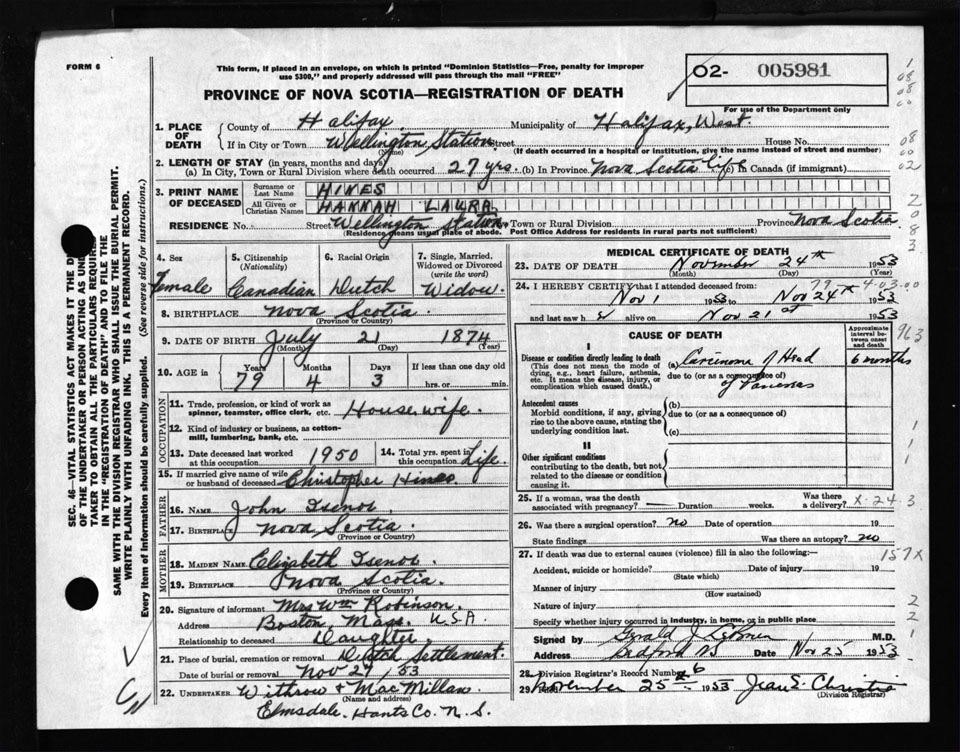 FORM 6
This form, if placed in an envelope, on which is printed "Dominion Statistics—Free, penalty for improper
use $300," and properly addressed will pass through the mail "FREE"
O2- 005981
For use of the Department only
PROVINCE OF NOVA SCOTIA—REGISTRATION OF DEATH
SEC. 46—VITAL STATISTICS ACT MAKES IT THE
OF THE UNDERTAKER OR PERSON ACTING AS
TAKER TO OBTAIN ALL THE PARTICULARS REQUIRED
IN THE "REGISTRATION OF DEATH" AND TO FILE THE
SAME WITH THE DIVISION REGISTRAR WHO SHALL ISSUE THE BURIAL PERMIT.
WRITE PLAINLY WITH UNFADING INK. THIS IS A PERMANENT RECORD.
Every item of Information should be carefully supplied. (See reverse side for instructions.)
1. PLACE OF DEATH
County of Halifax Municipality of Halifax, West.
If in City or Town Wellington Station Street House No.
(Name) (If death occurred in a hospital or institution, give the name instead of street and number)
2. LENGTH OF STAY (in years, months and days)
(a) In City, Town or Rural Division where death occurred 27 yrs. (b) In Province Nova Scotia Life (c) In Canada (if immigrant)
3. PRINT NAME OF DECEASED
Surname or Last Name HINES
All Given or Christian Names HANNAH LAURA
RESIDENCE No. Street Wellington Station Town or Rural Division Province Nova Scotia
(Residence means usual place of abode. Post Office Address for residents in rural parts not sufficient)
4. Sex Female
5. Citizenship (Nationality) Canadian
6. Racial Origin Dutch
7. Single, Married, Widowed or Divorced (write the word) Widow.
8. BIRTHPLACE Nova Scotia
(Province or Country)
9. DATE OF BIRTH July 21 1874
(Month) (Day) (Year)
10. AGE in Years 79 Months 4 Days 3 If less than one day old hrs. or min.
OCCUPATION
11. Trade, profession, or kind of work as spinner, teamster, office clerk, etc. Housewife.
12. Kind of industry or business, as cotton-mill, lumbering, bank, etc.
13. Date deceased last worked at this occupation 1950
14. Total yrs. spent in this occupation Life.
15. If married give name of wife or husband of deceased Christopher Hines
FATHER
16. Name John Isenor
17. Birthplace Nova Scotia.
(Province or Country)
MOTHER
18. MAIDEN NAME Elizabeth Isenor.
19. BIRTHPLACE Nova Scotia.
(Province or Country)
20. Signature of informant Mrs Wm Robinson.
Address Boston, Mass. U.S.A.
Relationship to deceased Daughter.
21. Place of burial, cremation or removal Dutch Settlement.
Date of burial or removal Nov 27, 53
22. UNDERTAKER Withrow & MacMillan.
(Name and address)
Elmsdale. Hants Co. N. S.
MEDICAL CERTIFICATE OF DEATH
23. DATE OF DEATH November 24th 1953
(Month) (Day) (Year)
24. I HEREBY CERTIFY that I attended deceased from:
Nov 1 1953 to Nov 24th 1953
and last saw h alive on Nov 21st 1953
CAUSE OF DEATH
Approximate interval between onset and death
I
Disease or condition directly leading to death
(This does not mean the mode of dying, e.g., heart failure, asthenia, etc. It means the disease, injury, or complication which caused death.)
(a) Carcinoma of Head 6 months
due to (or as a consequence of)
of Pancreas
Antecedent causes
Morbid conditions, if any, giving rise to the above cause, stating the underlying condition last.
(b)
due to (or as a consequence of)
(c)
II
Other significant conditions
contributing to the death, but not related to the disease or condition causing it.
25. If a woman, was the death associated with pregnancy? Duration weeks. Was there a delivery?
26. Was there a surgical operation? no Date of operation 19
State findings Was there an autopsy? no
27. If death was due to external causes (violence) fill in also the following:—
Accident, suicide or homicide? Date of injury 19
(State which)
Manner of injury
(How sustained)
Nature of injury
Specify whether injury occurred in industry, in home, or in public place
Signed by Gerald J. LeBrun M.D.
Address Bedford NS Date Nov 25 1953
28. Division Registrar's Record Number 6
29. November 25th 1953 Jean E. Christie
(Division Registrar)